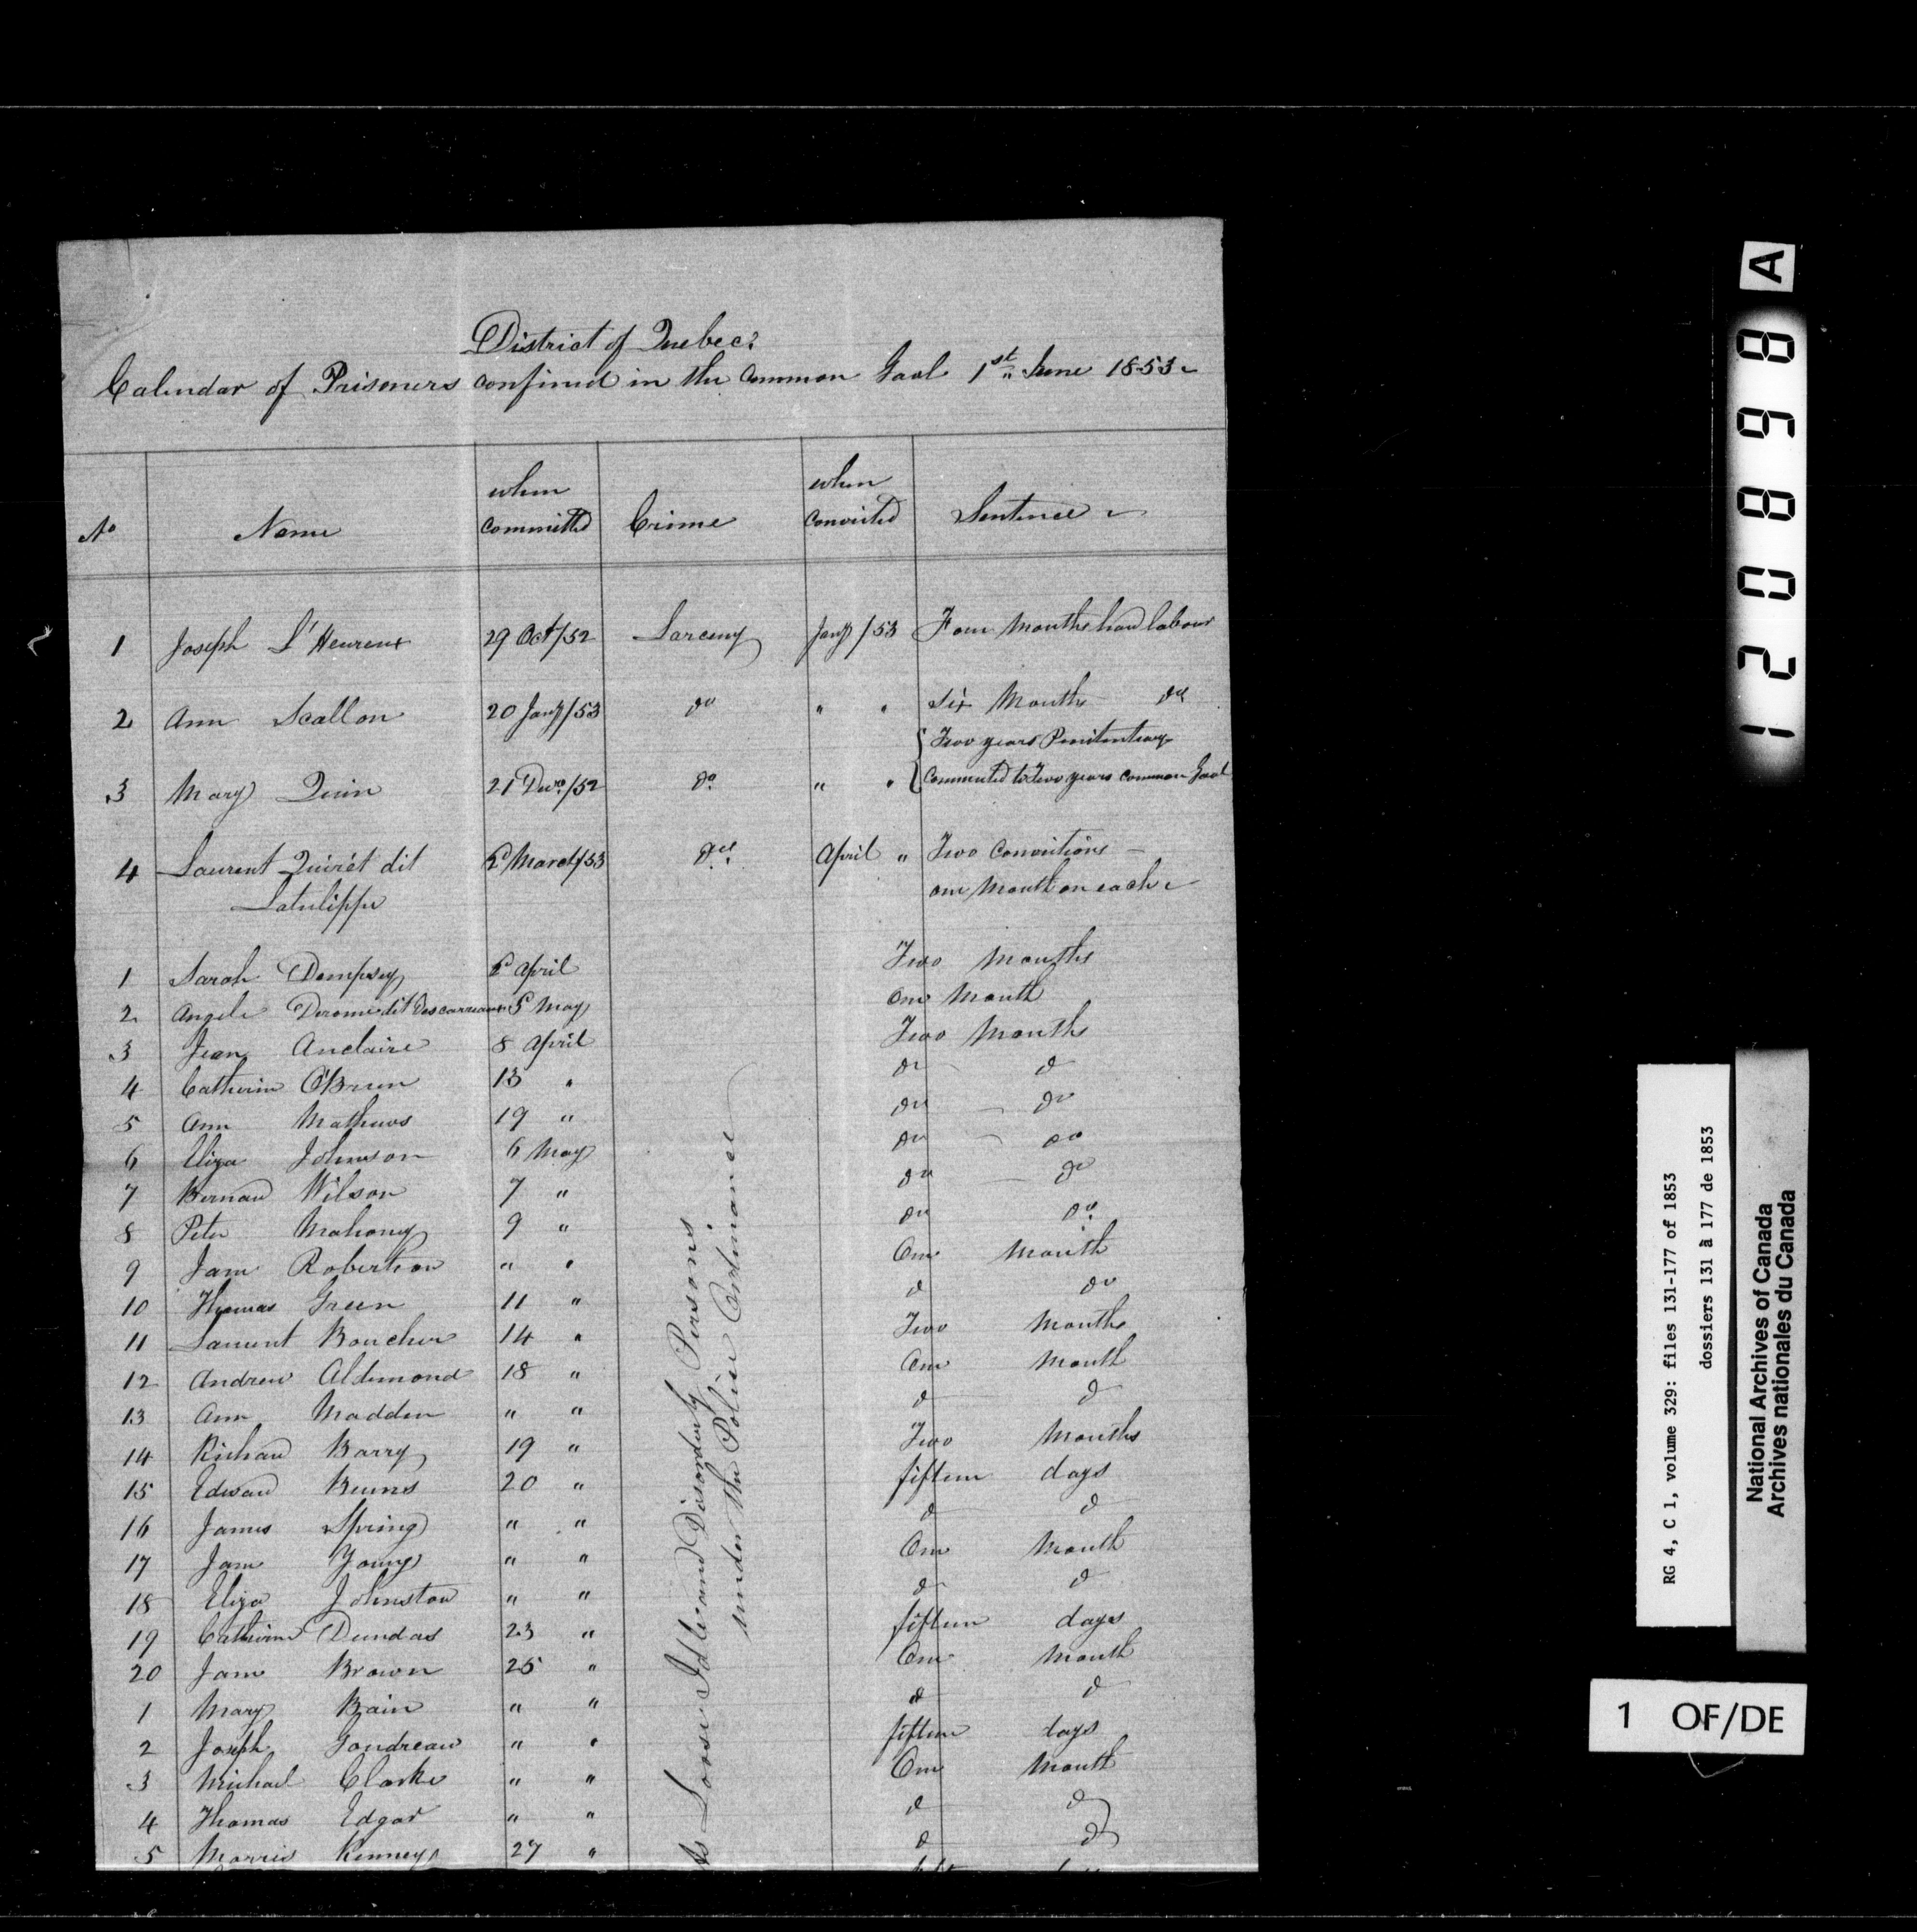 District of Quebec
Calendar of Prisoners confined in the Common Gaol 1st June 1853
No Name when committed Crime when convicted Sentence
1 Joseph L'Heureux 29 Oct/52 Larceny Jany/53 Four Months hard labour
2 Ann Scallon 20 Jany/53 do " " Six Months do
3 Mary Quin 21 Decr/52 do " " { Two years Penitentiary
Commuted to Two years Common Gaol
4 Laurent Quirét dit March/53 do April " Two Convictions –
Latulippe one Month on each
1 Sarah Dempsey April Two Months
2 Angele Derome dit Descarreaux 5 May One Month
3 Jean Anclaire 8 April Two Months
4 Catherine O'Brien 13 " do do
5 Ann Mathews 19 " do – do
6 Eliza Johnson 6 May do – do
7 Bernard Wilson 7 " do – do
8 Peter Mahony 9 " do do
9 Jane Robertson " " One Month
10 Thomas Green 11 " do do
11 Laurent Boucher 14 " Two Months
12 Andrew Aldimond 18 " One Month
13 Ann Madden " " do do
14 Richard Barry 19 " Two Months
15 Edward Burns 20 " fifteen days
16 James Spring " " do do
17 Jane Young " " One Month
18 Eliza Johnston " " do do
19 Catherine Dundas 23 " fifteen days
20 Jane Brown 25 " One Month
1 Mary Bain " " do do
2 Joseph Goudreau " " fifteen days
3 Michael Clarke " " One Month
4 Thomas Edgar " " do do
5 Morris Kenney 27 " do do
As Loose Idle and Disorderly Persons
under the Police Ordinance
120898 A
RG 4, C 1, volume 329: files 131-177 of 1853
dossiers 131 à 177 de 1853
National Archives of Canada
Archives nationales du Canada
1 OF/DE